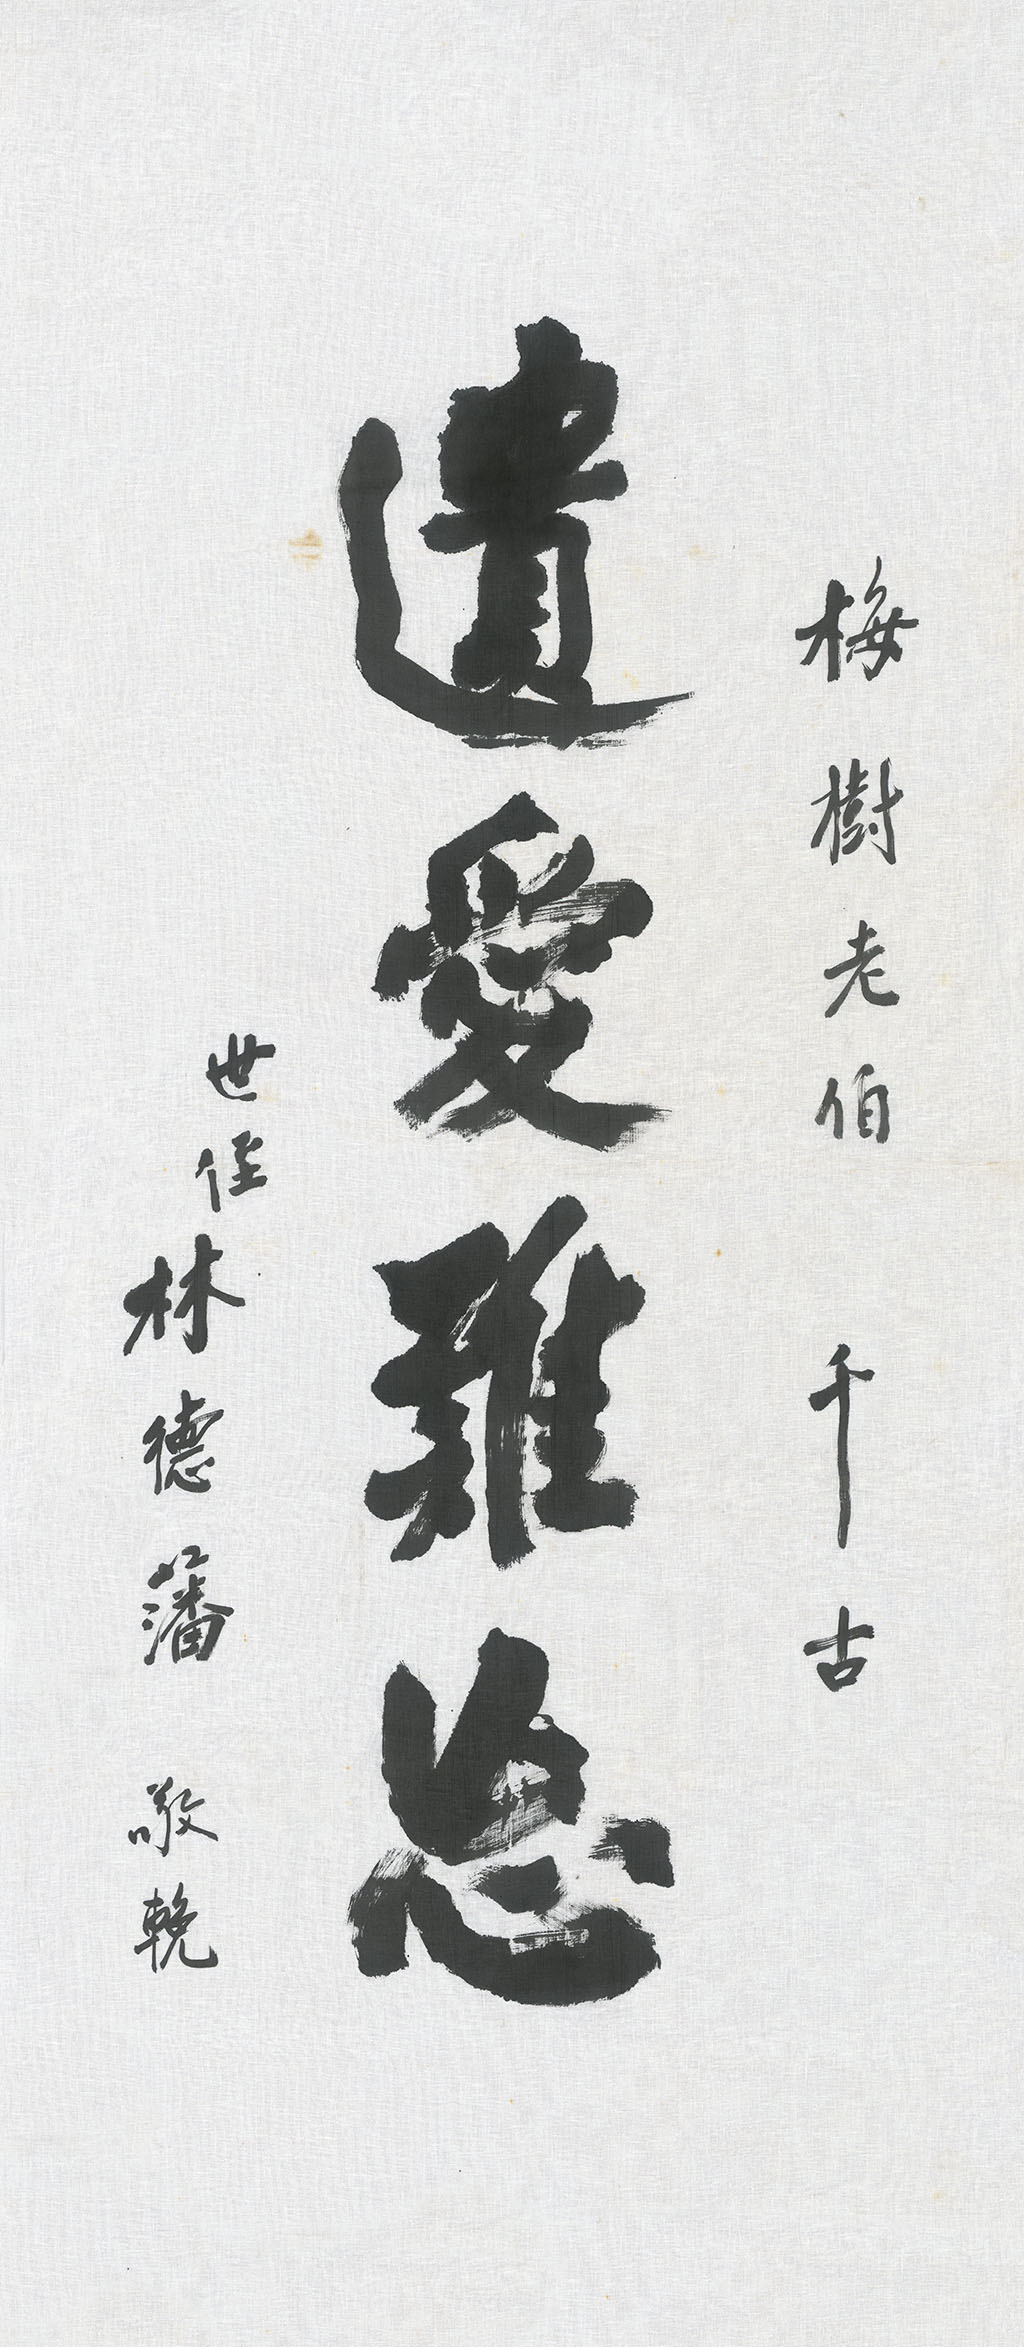 梅樹老伯 千古
遺愛難忘
世侄林德藩 敬輓